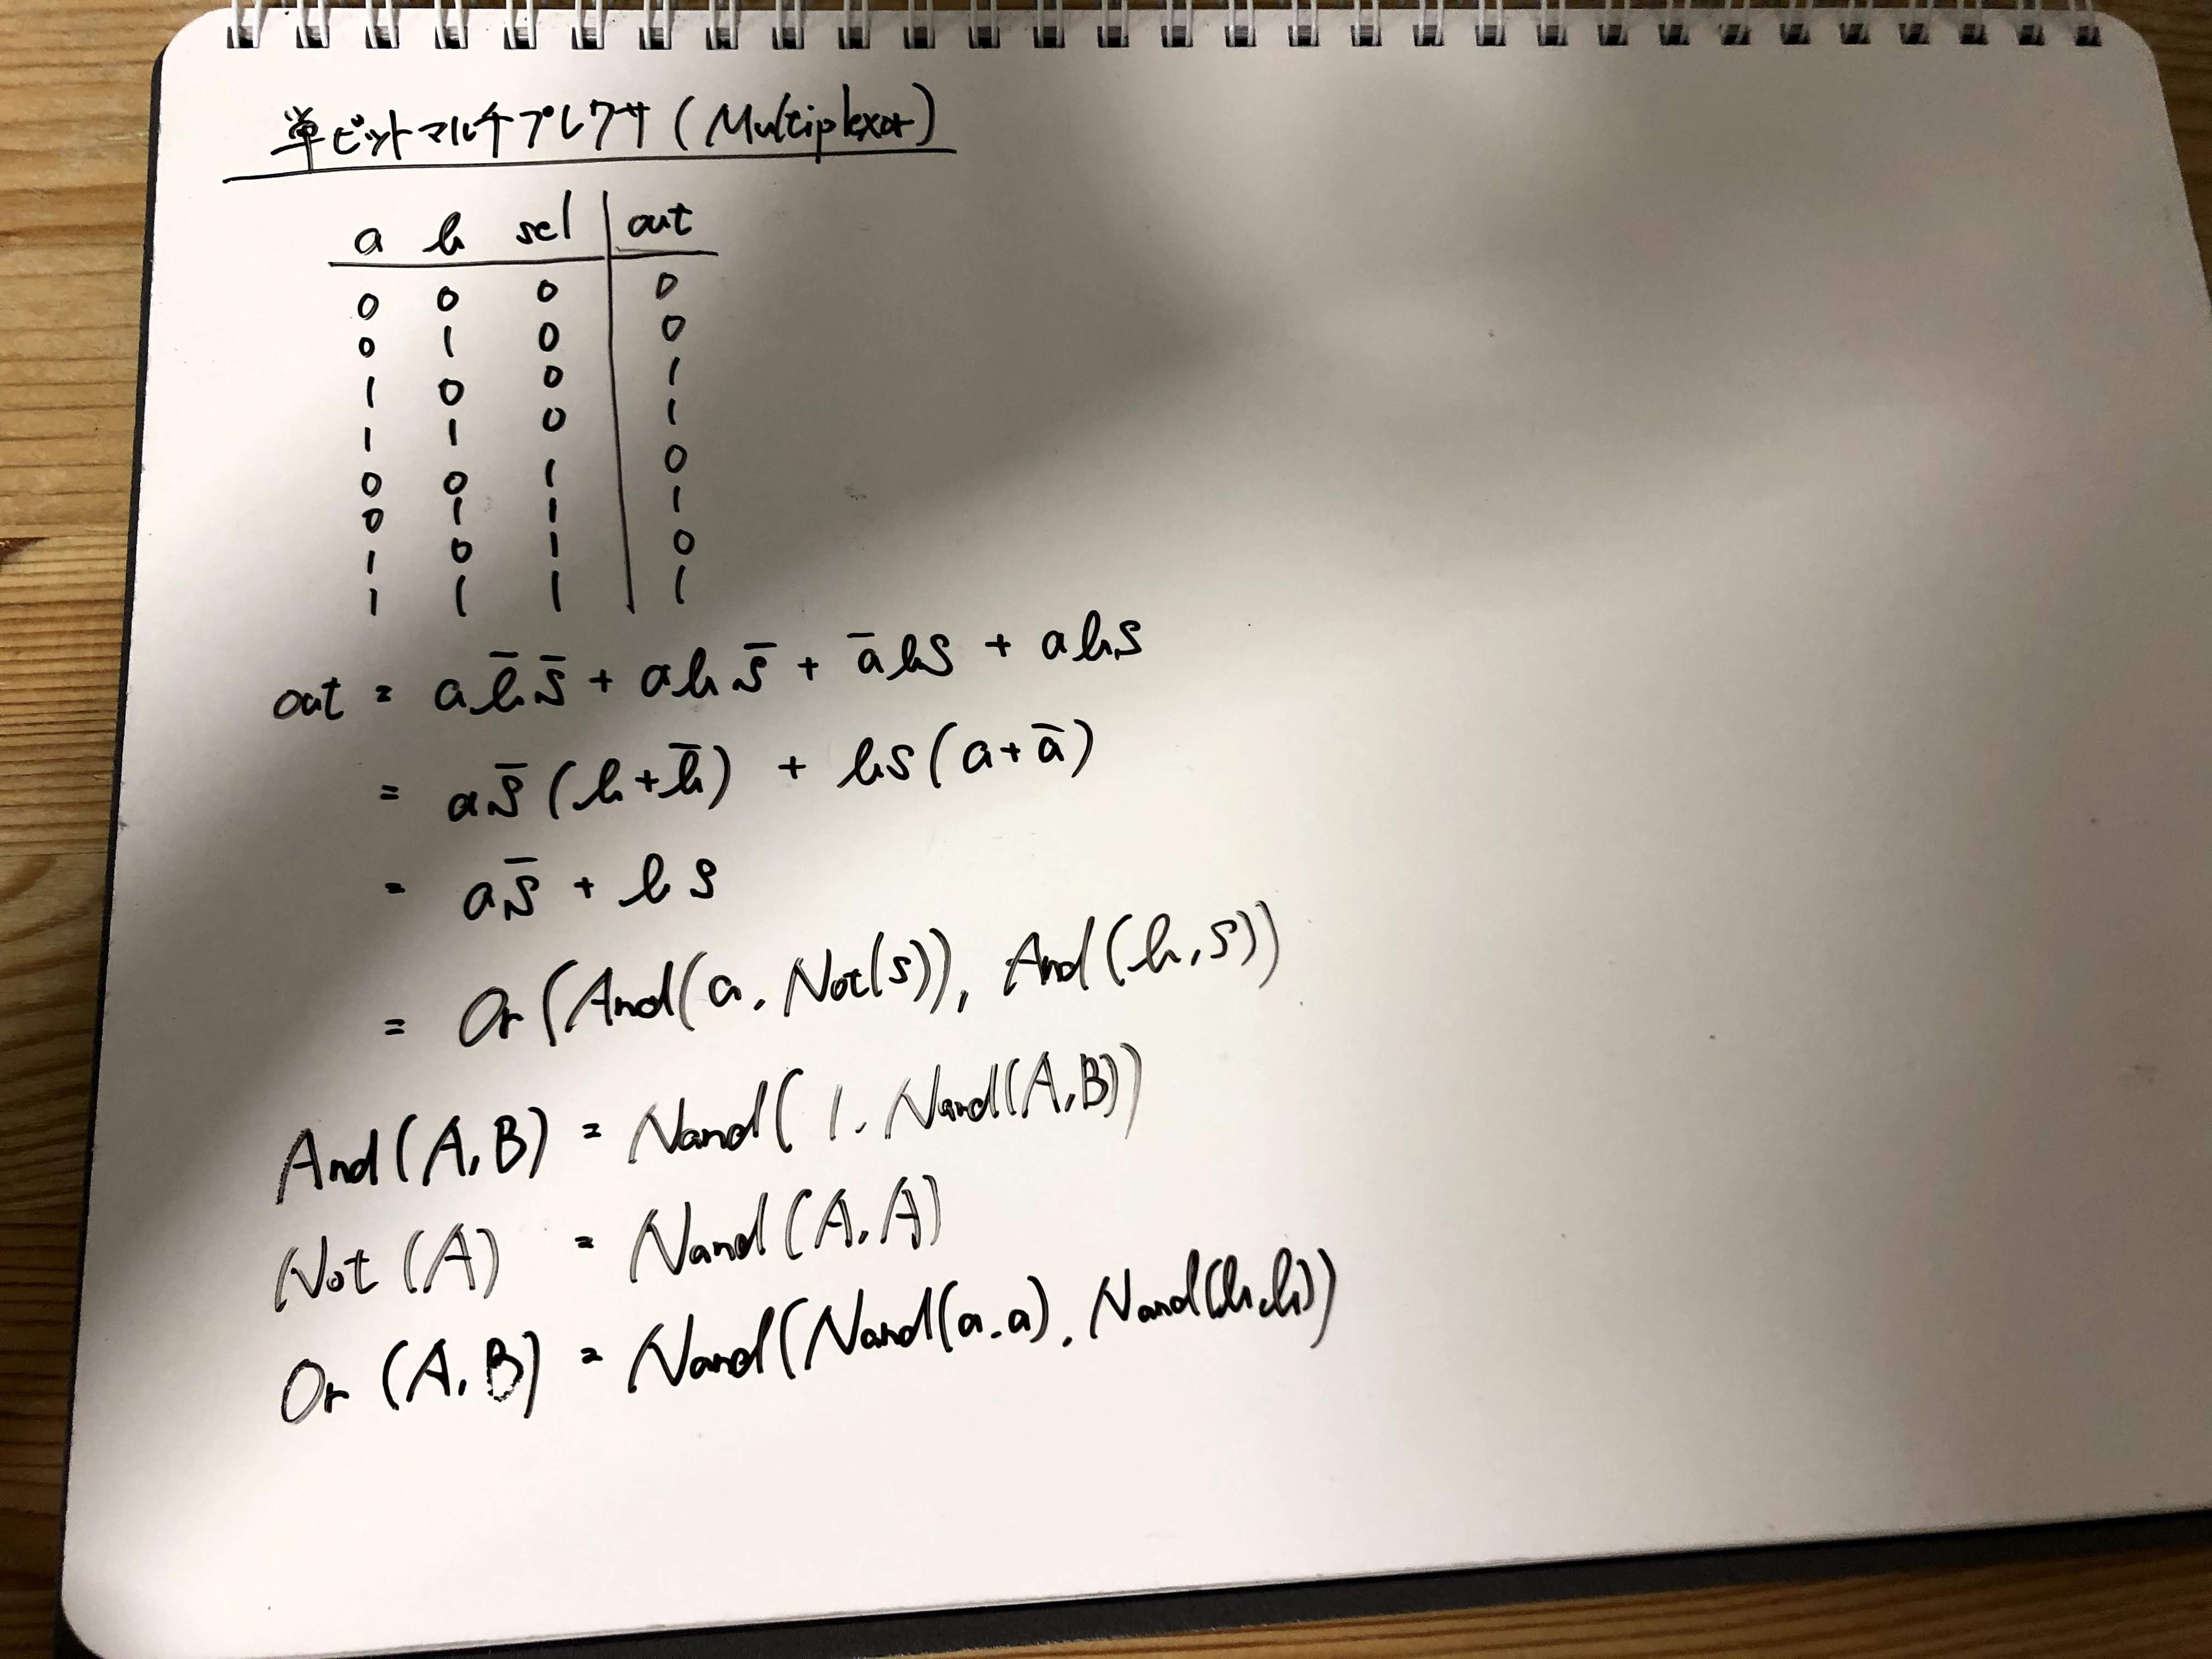 単ビットマルチプレクサ (Multiplexor)
a b sel out
0 0 0 0
0 1 0 0
1 0 0 1
1 1 0 1
0 0 1 0
0 1 1 1
1 0 1 0
1 1 1 1
out = ab̅s̅ + abs̅ + a̅bs + abs
= as̅(b+b̅) + bs(a+a̅)
= as̅ + bs
= Or(And(a, Not(s)), And(b,s))
And(A,B) = Nand(1, Nand(A,B))
Not(A) = Nand(A,A)
Or(A,B) = Nand(Nand(a,a), Nand(b,b))